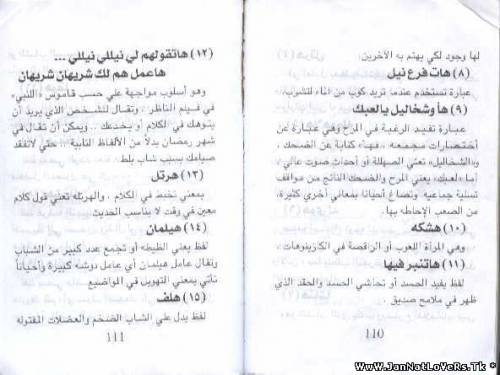 لها وجود لكي يهتم به الآخرين.
(٨) هات فرع نيل
عبارة تستخدم عندما تريد كوب من الماء لتشرب.
(٩) هأ وشخاليل يالعبك
عبارة تفيد الرغبة في المرح وهي عبارة عن
أختصارات مجمعه .. فهأ» كتابة عن الضحك،
و«الشخاليل» تعني الصهللة أو أحداث صوت عالي،
أما «لعبك» يعني المرح والضحك الناتج من مواقف
تسلية جماعيه وتصاغ أحيانا بمعاني أخري كثيرة،
من الصعب الإحاطه بها.
(١٠) هشكه
وهي المرأة اللعوب أو الراقصة في الكازينوهات.
(١١) هاتنبر فيها
لفظ يفيد الحسد أو تحاشي الحسد والحقد الذي
ظهر في ملامح صديق.
110
(١٢) هاتقولهم لي نيللي نيللي ...
هاعمل هم لك شريهان شريهان
وهو أسلوب مواجهة علي حسب قاموس «اللنبي»
في فيلم الناظر، وتقال للشخص الذي يريد أن
يتوهك في الكلام أو يخدعك .. ويمكن أن تقال في
شهر رمضان بدلاً من الألفاظ النابية .. حتي لاتفقد
صيامك بسبب شاب بلط.
(١٣) هرتل
بمعني تخبط في الكلام .. والهرتله تعني قول كلام
معين في وقت لا يناسب الحديث
(١٤) هيلمان
لفظ يعني الظيطه أو تجمع عدد كبير من الشباب
وتقال عامل هيلمان أي عامل دوشه كبيرة وأحياناً
تأتي بمعني التهويل في المواضيع
(١٥) هلف
لفظ يدل علي الشاب الضخم والعضلات المفتوله
111
Www.JanNatLoVeRs.Tk *